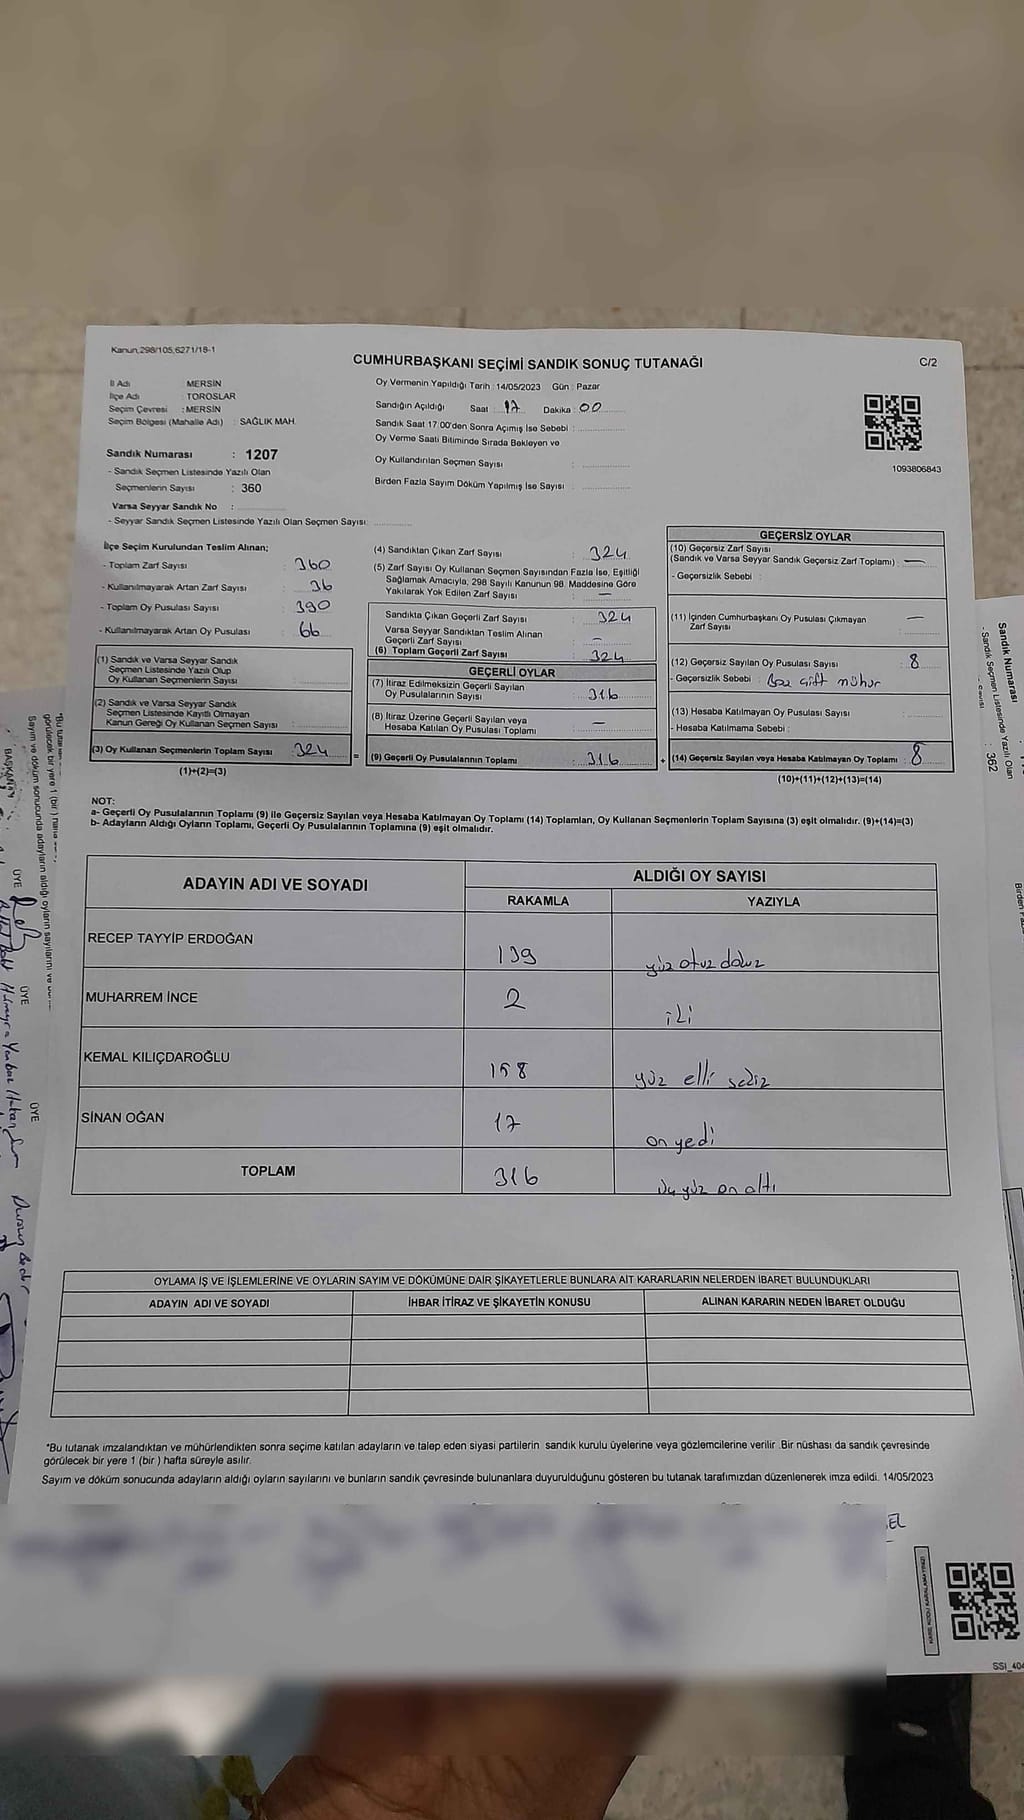 Kanun,298/105,6271/18-1
CUMHURBAŞKANI SEÇİMİ SANDIK SONUÇ TUTANAĞI
C/2
İl Adı : MERSİN
İlçe Adı : TOROSLAR
Seçim Çevresi : MERSİN
Seçim Bölgesi (Mahalle Adı) : SAĞLIK MAH.
Oy Vermenin Yapıldığı Tarih : 14/05/2023 Gün : Pazar
Sandığın Açıldığı Saat : 17 Dakika : 00
Sandık Saat 17:00'den Sonra Açımış İse Sebebi :
Oy Verme Saati Bitiminde Sırada Bekleyen ve
Oy Kullandırılan Seçmen Sayısı :
Birden Fazla Sayım Döküm Yapılmış İse Sayısı :
1093806843
Sandık Numarası : 1207
- Sandık Seçmen Listesinde Yazılı Olan
Seçmenlerin Sayısı : 360
Varsa Seyyar Sandık No :
- Seyyar Sandık Seçmen Listesinde Yazılı Olan Seçmen Sayısı:
İlçe Seçim Kurulundan Teslim Alınan;
- Toplam Zarf Sayısı : 360
- Kullanılmayarak Artan Zarf Sayısı : 36
- Toplam Oy Pusulası Sayısı : 390
- Kullanılmayarak Artan Oy Pusulası : 66
(1) Sandık ve Varsa Seyyar Sandık
Seçmen Listesinde Yazılı Olup
Oy Kullanan Seçmenlerin Sayısı :
(2) Sandık ve Varsa Seyyar Sandık
Seçmen Listesinde Kayıtlı Olmayan
Kanun Gereği Oy Kullanan Seçmen Sayısı :
(3) Oy Kullanan Seçmenlerin Toplam Sayısı : 324
(1)+(2)=(3)
(4) Sandıktan Çıkan Zarf Sayısı : 324
(5) Zarf Sayısı Oy Kullanan Seçmen Sayısından Fazla İse, Eşitliği
Sağlamak Amacıyla, 298 Sayılı Kanunun 98. Maddesine Göre
Yakılarak Yok Edilen Zarf Sayısı : —
Sandıkta Çıkan Geçerli Zarf Sayısı : 324
Varsa Seyyar Sandıktan Teslim Alınan
Geçerli Zarf Sayısı : –
(6) Toplam Geçerli Zarf Sayısı : 324
GEÇERLİ OYLAR
(7) İtiraz Edilmeksizin Geçerli Sayılan
Oy Pusulalarının Sayısı : 316
(8) İtiraz Üzerine Geçerli Sayılan veya
Hesaba Katılan Oy Pusulası Toplamı : —
= (9) Geçerli Oy Pusulalarının Toplamı : 316
GEÇERSİZ OYLAR
(10) Geçersiz Zarf Sayısı
(Sandık ve Varsa Seyyar Sandık Geçersiz Zarf Toplamı) : —
- Geçersizlik Sebebi :
(11) İçinden Cumhurbaşkanı Oy Pusulası Çıkmayan
Zarf Sayısı : —
(12) Geçersiz Sayılan Oy Pusulası Sayısı : 8
- Geçersizlik Sebebi : Boş çift mühür
(13) Hesaba Katılmayan Oy Pusulası Sayısı :
- Hesaba Katılmama Sebebi :
+ (14) Geçersiz Sayılan veya Hesaba Katılmayan Oy Toplamı : 8
(10)+(11)+(12)+(13)=(14)
NOT:
a- Geçerli Oy Pusulalarının Toplamı (9) ile Geçersiz Sayılan veya Hesaba Katılmayan Oy Toplamı (14) Toplamları, Oy Kullanan Seçmenlerin Toplam Sayısına (3) eşit olmalıdır. (9)+(14)=(3)
b- Adayların Aldığı Oyların Toplamı, Geçerli Oy Pusulalarının Toplamına (9) eşit olmalıdır.
ADAYIN ADI VE SOYADI
ALDIĞI OY SAYISI
RAKAMLA YAZIYLA
RECEP TAYYİP ERDOĞAN 139 yüz otuz dokuz
MUHARREM İNCE 2 iki
KEMAL KILIÇDAROĞLU 158 yüz elli sekiz
SİNAN OĞAN 17 on yedi
TOPLAM 316 üçyüz on altı
OYLAMA İŞ VE İŞLEMLERİNE VE OYLARIN SAYIM VE DÖKÜMÜNE DAİR ŞİKAYETLERLE BUNLARA AİT KARARLARIN NELERDEN İBARET BULUNDUKLARI
ADAYIN ADI VE SOYADI
İHBAR İTİRAZ VE ŞİKAYETİN KONUSU
ALINAN KARARIN NEDEN İBARET OLDUĞU
*Bu tutanak imzalandıktan ve mühürlendikten sonra seçime katılan adayların ve talep eden siyasi partilerin sandık kurulu üyelerine veya gözlemcilerine verilir. Bir nüshası da sandık çevresinde
görülecek bir yere 1 (bir ) hafta süreyle asılır.
Sayım ve döküm sonucunda adayların aldığı oyların sayılarını ve bunların sandık çevresinde bulunanlara duyurulduğunu gösteren bu tutanak tarafımızdan düzenlenerek imza edildi. 14/05/2023
SSI_404
görülecek bir yere 1 (bir )
Sayım ve döküm sonucunda adayların aldığı oyların sayılarını ve
BAŞKAN
ÜYE
ÜYE
ÜYE
Sandık Numarası
- Sandık Seçmen Listesinde Yazılı Olan
: 362